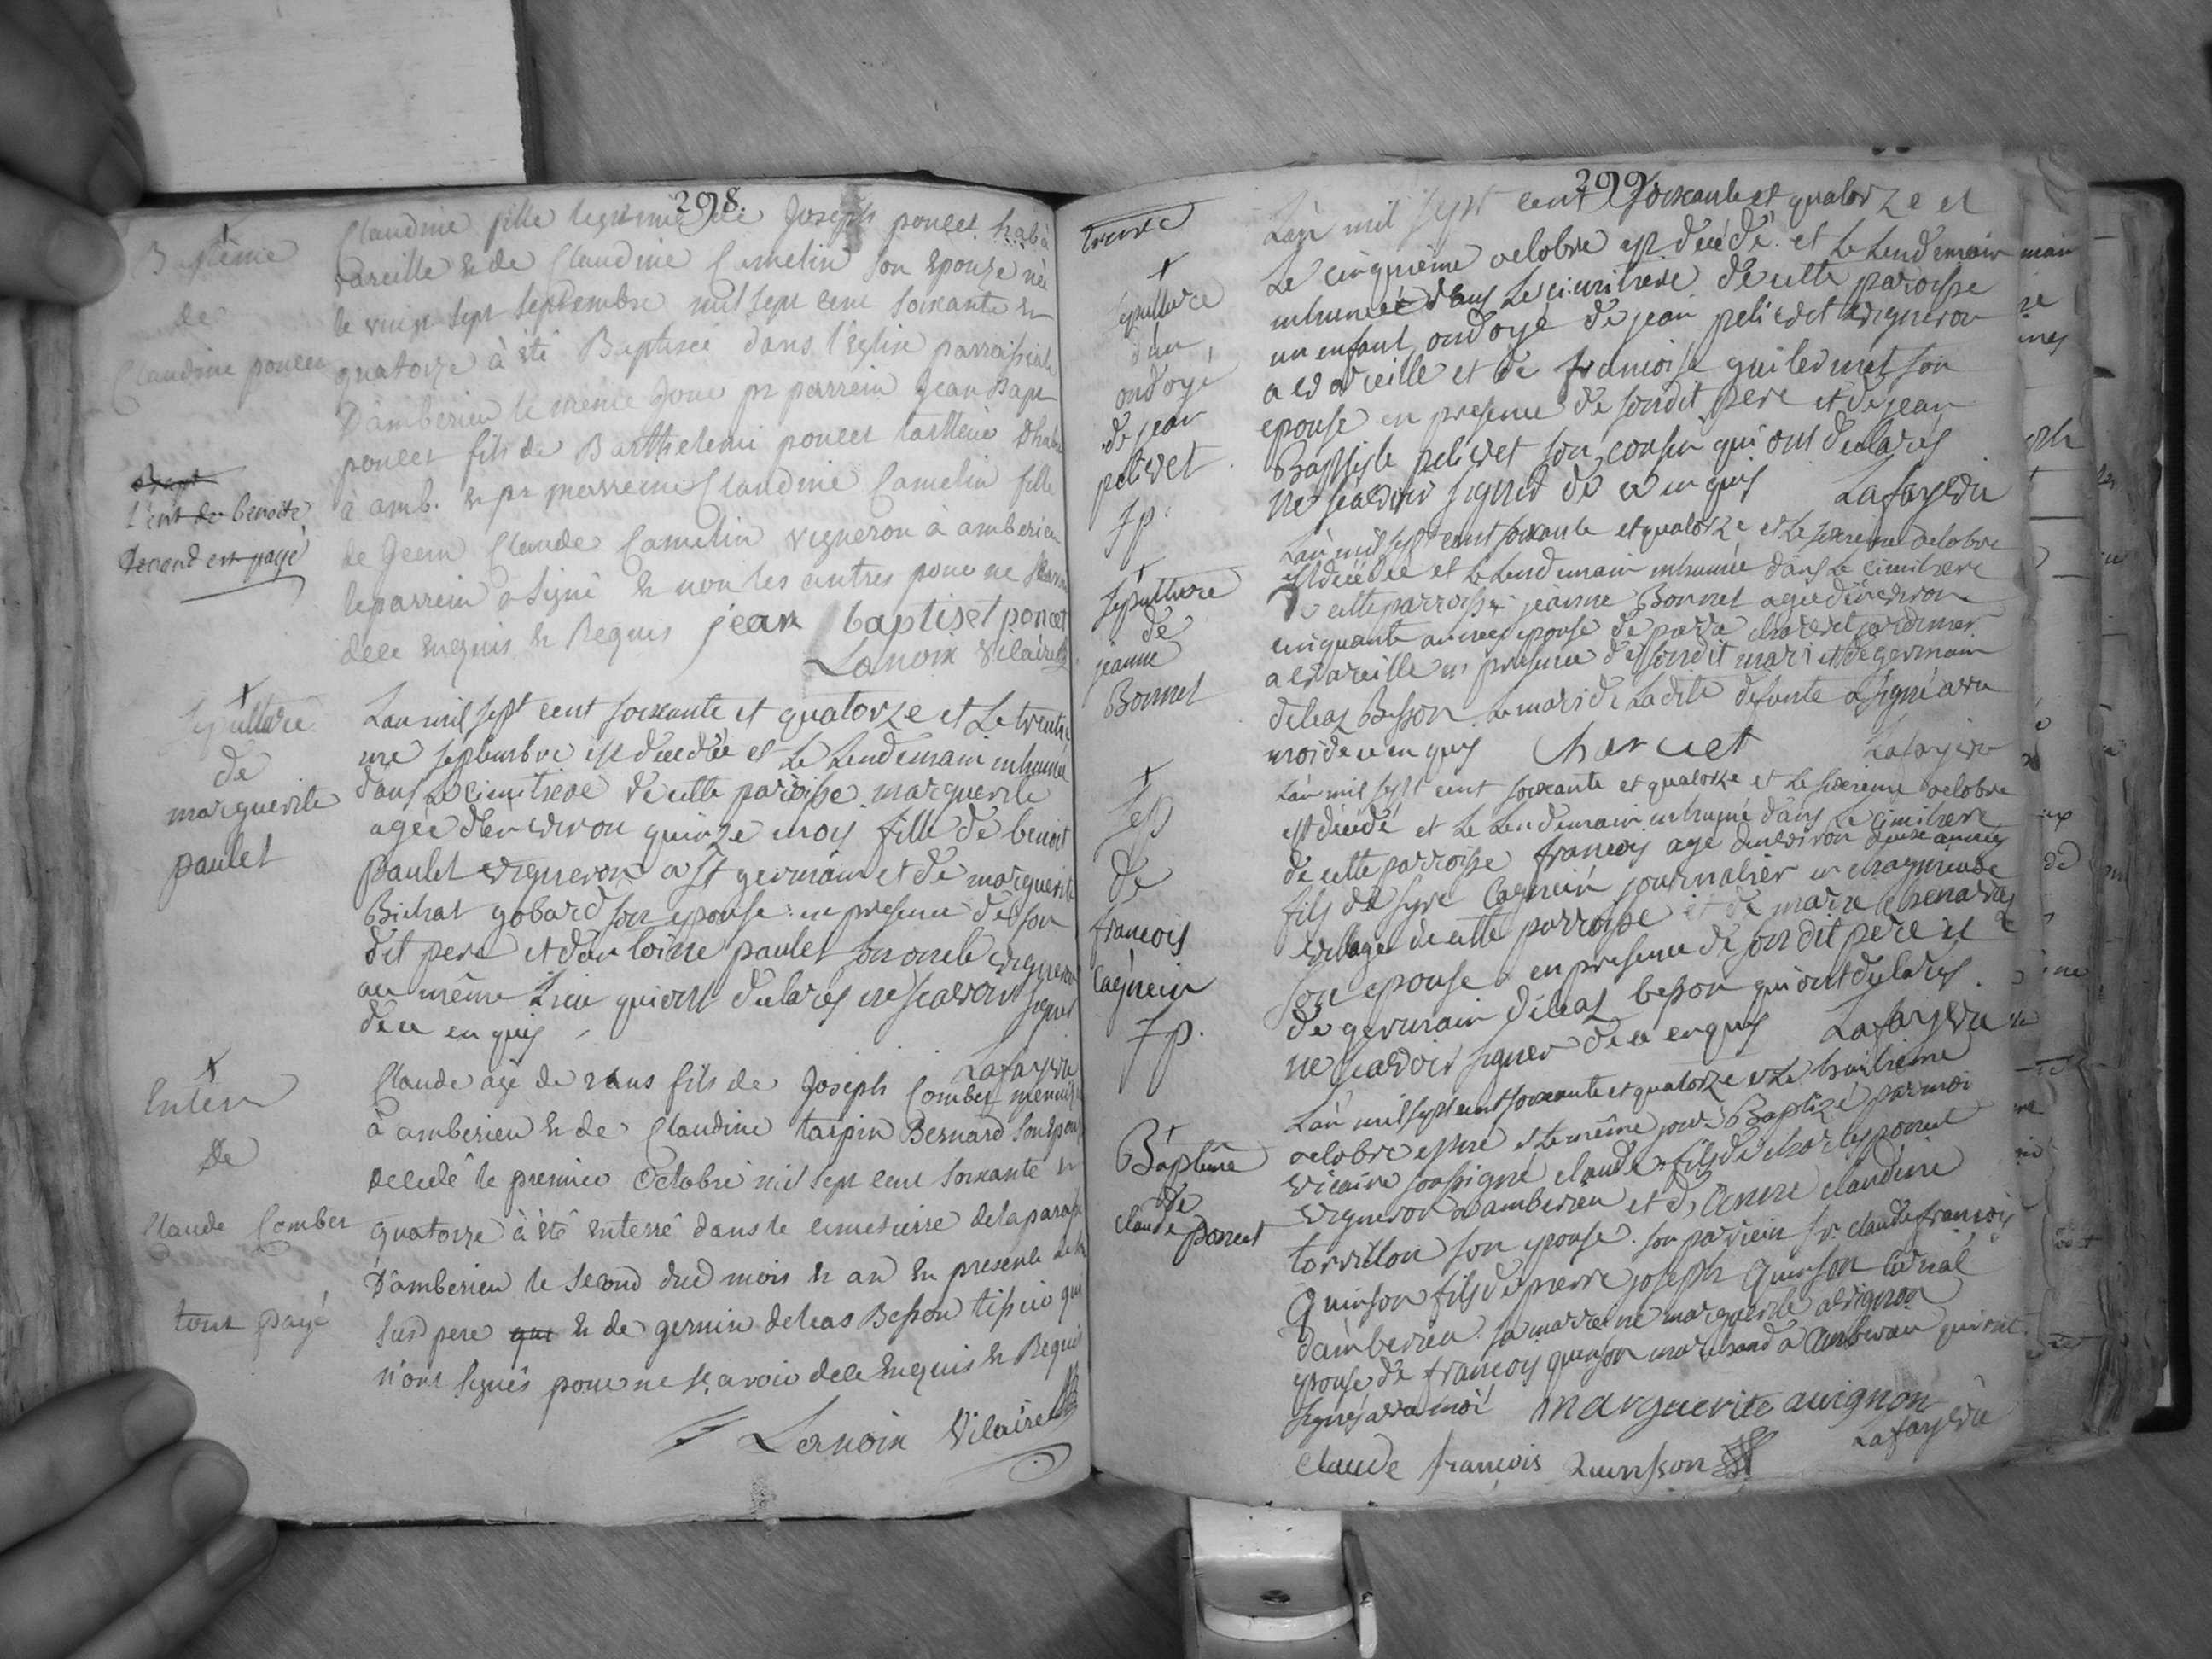 298.
Baptême
de
Claudine poncet
Claudine fille legitime de Joseph poncet hab à
vareille & de Claudine Camelin son Epouse née
le vingt sept septembre mil sept cent soixante &
quatorze à été Baptisée dans l'Eglise parroissiale
D'amberieu le meme Jour pr parrein Jean Bapt
poncet fils de Barthelemi poncet
à amb. & pr marreine Claudine Camelin fille
de Jean Claude Camelin vigneron à amberieu
le parrein a signé & non les autres pour ne scavoir
dece Enquis & Requis jean baptiset poncet
Lanoix Vicaire
Sepulture
de
marguerite
paulet
Lan mil sept cent soixante et quatorze et Le trentie
me septembre est decedée et Le Lendemain inhumée
dans Le cimitiere de cette paroisse marguerite
agée d'environ quinze mois fille de benoit
paulet vigneron a St germain et de marguerite
Bichat gobard son epouse en presence de son
dit pere et d'antoine paulet son oncle vigneron
au même Lieu qui ont declarés ne scavoir signer
de ce enquis
Lafay vic
Enterr
de
Claude Combet
tout payé
Claude agé de 2 ans fils de Joseph Combet menuisier
à amberieu & de Claudine tarpin Bernard son Epouse
decedé le premier Octobre mil sept cent soixante &
quatorze à été Enterré dans le cimetierre de la paroisse
D'amberieu le second dud mois & an En presence de
susd pere & de germin deleas Besson tissier qui
n'ont signés pour ne scavoir dece Enquis & Requis
Lanoix Vicaire
299.
Sepulture
d'un
ondoyé
de jean
pelicvet
Lan mil sept cent soixante et quatorze et
Le cinquieme octobre est decedé et Le Lendemain
inhumé dans Le cimitiere de cette paroisse
un enfant ondoyé de jean pelicvet vigneron
a vareille et de francoise guilermet son
epouse en presence de sondit pere et de jean
Baptiste pelicvet son cousin qui ont declarés
ne scavoir signer de ce enquis Lafay vic
Sepulture
de
jeanne
Bonnet
Lan mil sept cent soixante et quatorze et Le sixieme octobre
est decedée et Le Lendemain inhumée dans Le cimitiere
de cette parroisse jeanne Bonnet agée d'environ
cinquante années epouse de pierre charvet jardinier
a vareille en presence de sondit mari et de germain
deleas Besson Le mari de Ladite defunte a signé avec
moi de ce enquis Charvet Lafay vic
Sep
de
francois
Cagnin
Lan mil sept cent soixante et quatorze et Le sixieme octobre
est decedé et Le Lendemain inhumé dans Le cimitiere
de cette parroisse francois agé d'environ douze années
fils de Cagnin journalier
village de cette parroisse et de marie
son epouse en presence de sondit pere et
de germain deleas besson qui ont declarés
ne scavoir signer de ce enquis Lafay vic
Baptême
de
Claude poncet
Lan mil sept cent soixante et quatorze et Le huitieme
octobre est né et Le même jour Baptizé par moi
vicaire soussigné claude fils de charles poncet
vigneron a amberieu et d'Anne claudine
torvillon son epouse son parrein Sr claude francois
Quinson fils de pierre joseph Quinson
d'amberieu sa marreine marguerite avignon
epouse de francois quinson marchand a amberieu qui ont
signés avec moi marguerite auignon
claude françois Quinson Lafay vic